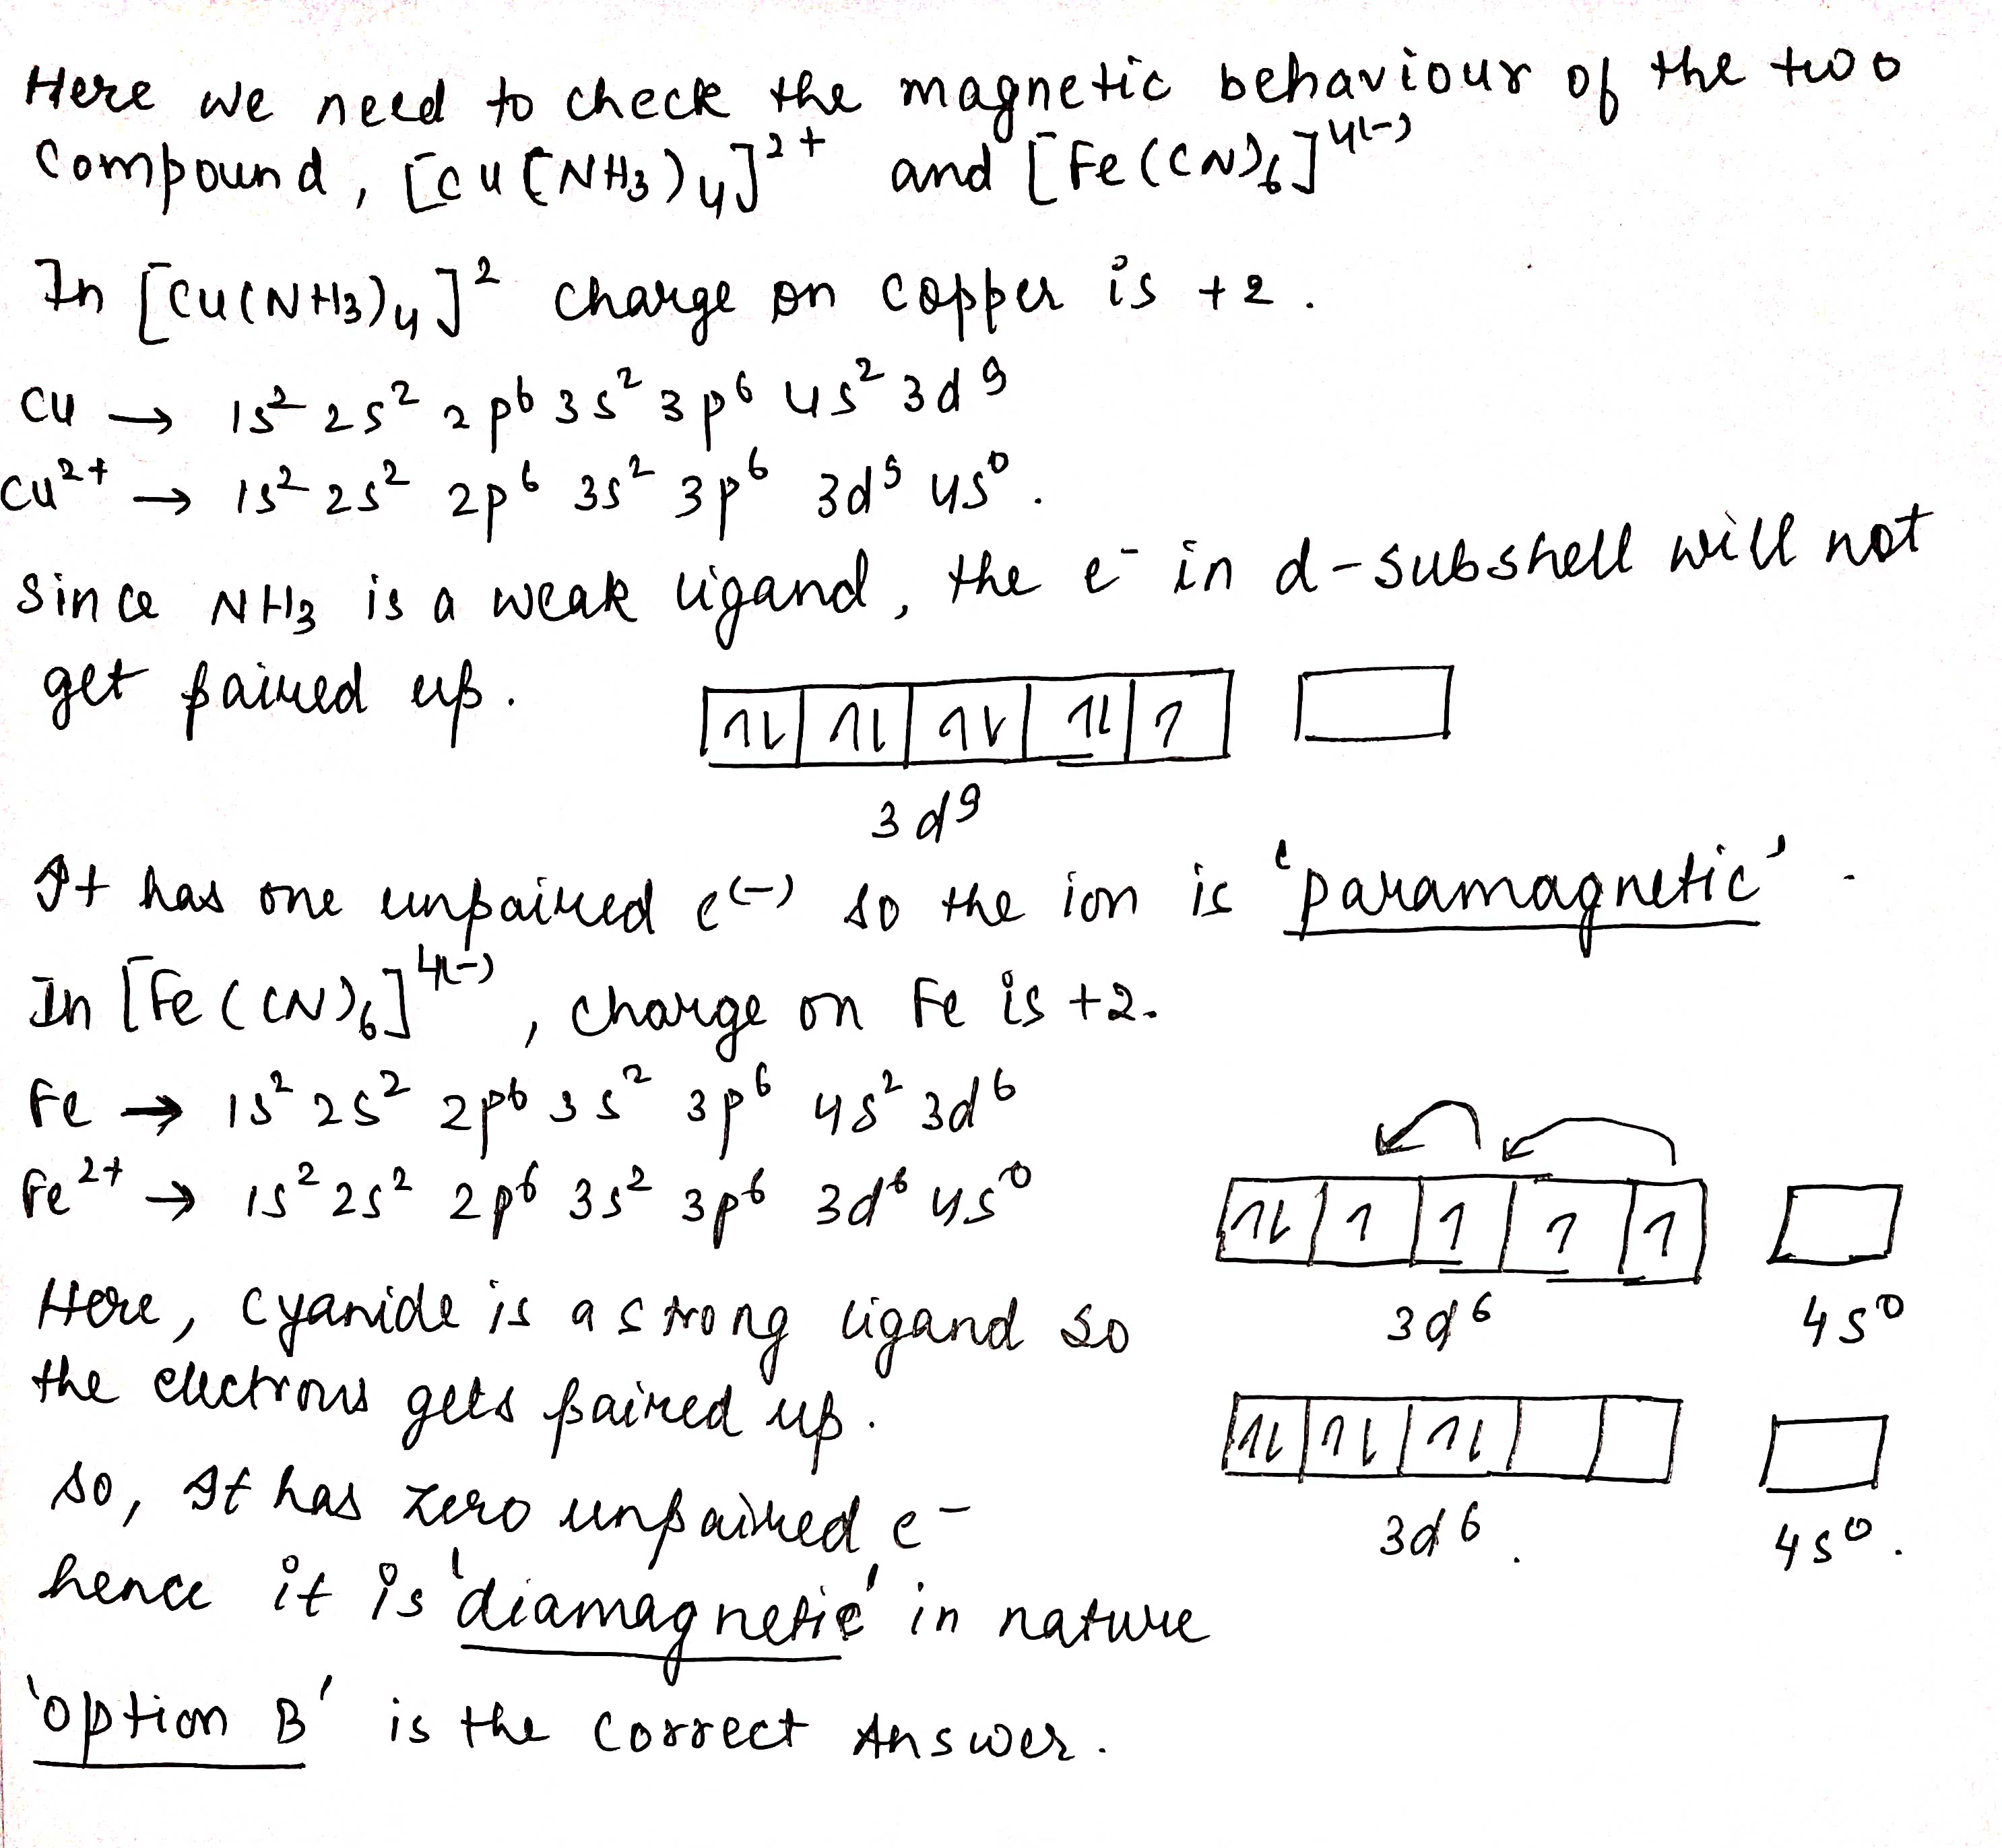 Here we need to check the magnetic behaviour of the two
compound, [Cu(NH₃)₄]²⁺ and [Fe(CN)₆]⁴⁽⁻⁾
In [Cu(NH₃)₄]² charge on copper is +2.
Cu → 1s² 2s² 2p⁶ 3s² 3p⁶ 4s² 3d⁹
Cu²⁺ → 1s² 2s² 2p⁶ 3s² 3p⁶ 3d⁹ 4s⁰.
Since NH₃ is a weak ligand, the e⁻ in d-subshell will not
get paired up.
↿⇂ ↿⇂ ↿⇂ ↿⇂ ↿
3d⁹
It has one unpaired e⁽⁻⁾ so the ion is 'paramagnetic'.
In [Fe(CN)₆]⁴⁽⁻⁾, charge on Fe is +2.
Fe → 1s² 2s² 2p⁶ 3s² 3p⁶ 4s² 3d⁶
Fe²⁺ → 1s² 2s² 2p⁶ 3s² 3p⁶ 3d⁶ 4s⁰
↿⇂ ↿ ↿ ↿ ↿
3d⁶ 4s⁰
Here, cyanide is a strong ligand so
the electrons gets paired up.
↿⇂ ↿⇂ ↿⇂
3d⁶. 4s⁰.
so, It has zero unpaired e⁻
hence it is 'diamagnetic' in nature
'option B' is the correct Answer.